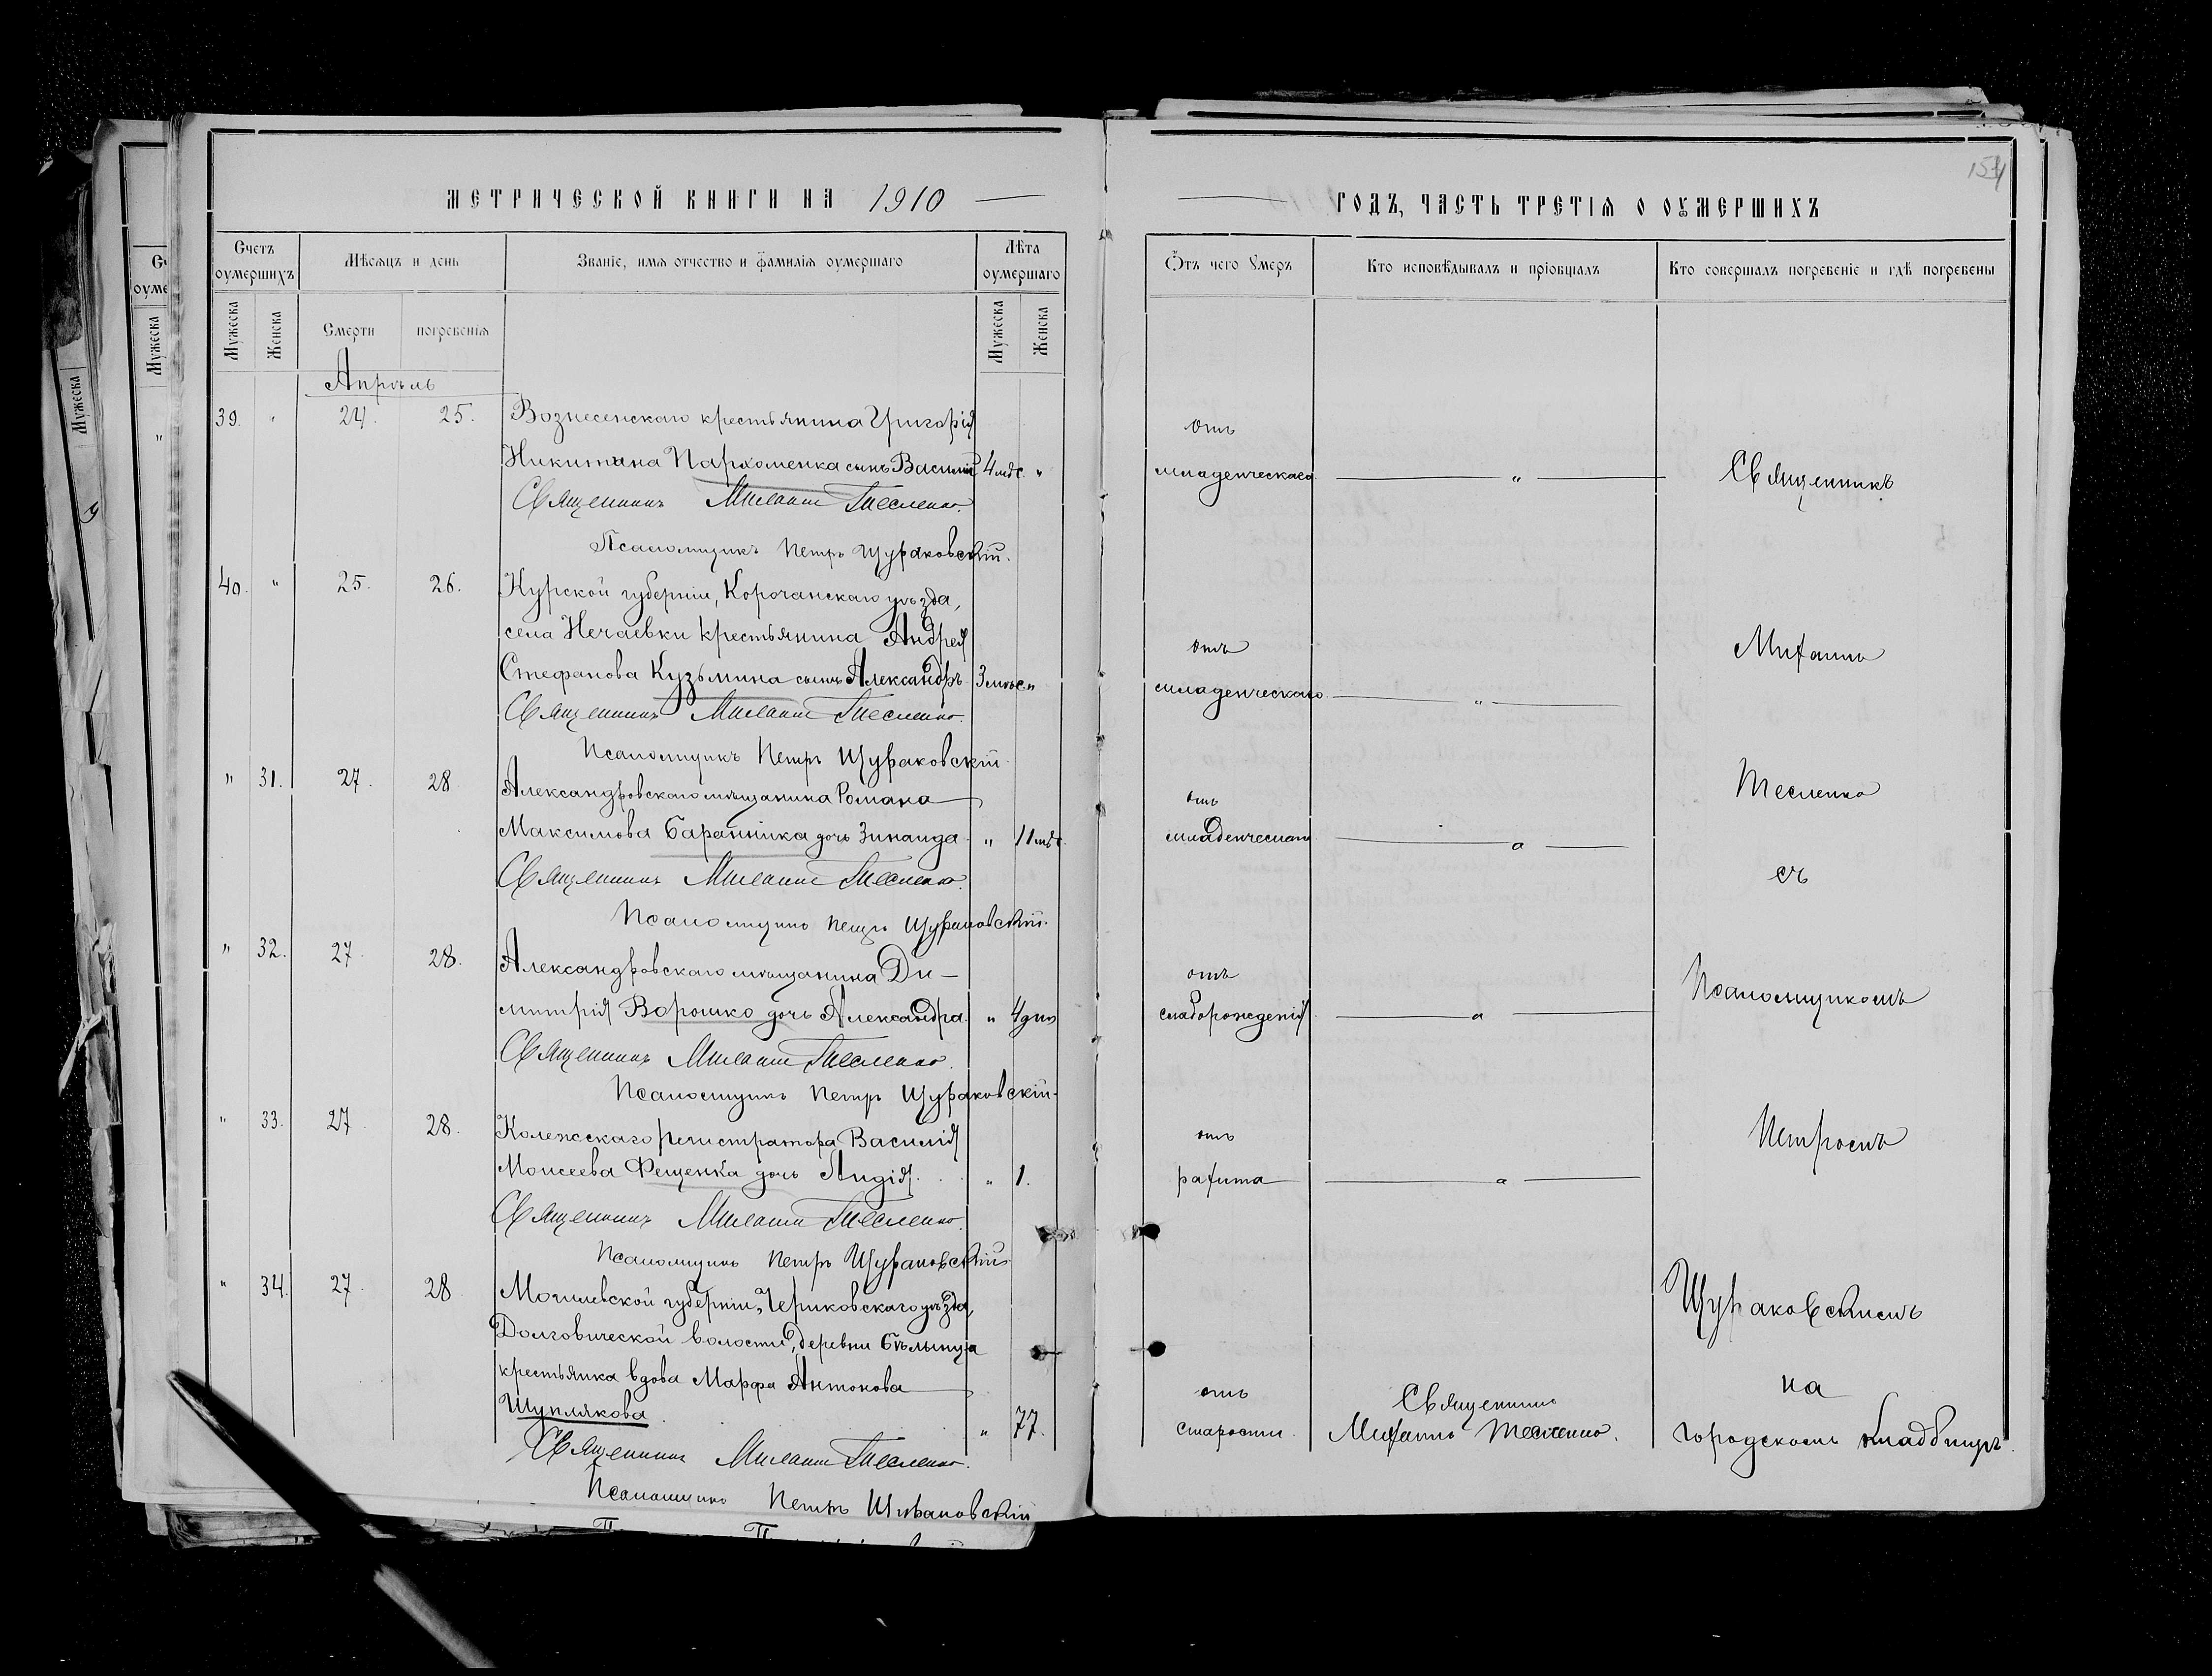 МЕТРИЧЕСКОЙ КНИГИ НА 1910
Счетъ оумершихъ
Мѣсяцъ и день
Званіе, имя отчество и фамилія оумершаго
Лѣта оумершаго
Мужеска
Женска
Смерти
погребенія
Мужеска
Женска
Апрѣль
39. " 24. 25. Вознесенскаго крестьянина Григорія
Никитина Пархоменка сынъ Василій 4 мѣс. "
Священникъ Михаилъ Тесленко.
Псаломщикъ Петръ Щураковскій.
40. " 25. 26. Курской губерніи, Корочанскаго уѣзда,
села Нечаевки крестьянина Андрея
Стефанова Кузьмина сынъ Александръ 3 мѣс. "
Священникъ Михаилъ Тесленко.
Псаломщикъ Петръ Щураковскій.
" 31. 27. 28 Александровскаго мѣщанина Романа
Максимова Баранника дочь Зинаида " 11 мѣс.
Священникъ Михаилъ Тесленко.
Псаломщикъ Петръ Щураковскій.
" 32. 27. 28. Александровскаго мѣщанина Ди-
митрія Ворошко дочь Александра " 4 дня
Священникъ Михаилъ Тесленко.
Псаломщикъ Петръ Щураковскій.
" 33. 27. 28. Колежскаго регистратора Василія
Моисеева Фещенка дочь Лидія. " 1.
Священникъ Михаилъ Тесленко.
Псаломщикъ Петръ Щураковскій
" 34. 27. 28 Могилевской губерніи, Чериковскаго уѣзда,
Долговической волости, деревни Бѣлыница
крестьянка вдова Марфа Антонова
Шуплякова. " 77.
Священникъ Михаилъ Тесленко.
Псаломщикъ Петръ Щураковскій
154
ГОДЪ, ЧАСТЬ ТРЕТІЯ О ОУМЕРШИХЪ
Ѿтъ чего Умеръ
Кто исповѣдывалъ и пріобщалъ
Кто совершалъ погребеніе и гдѣ погребены
Отъ
младенческаго " Священникъ
отъ
младенческаго " Михаилъ
отъ
младенческаго " Тесленко
съ
отъ
слаборожденія " Псаломщикомъ
отъ
рахита " Петромъ
Щураковскимъ
на
отъ
старости. Священникъ
Михаилъ Тесленко.
городскомъ кладбищѣ.